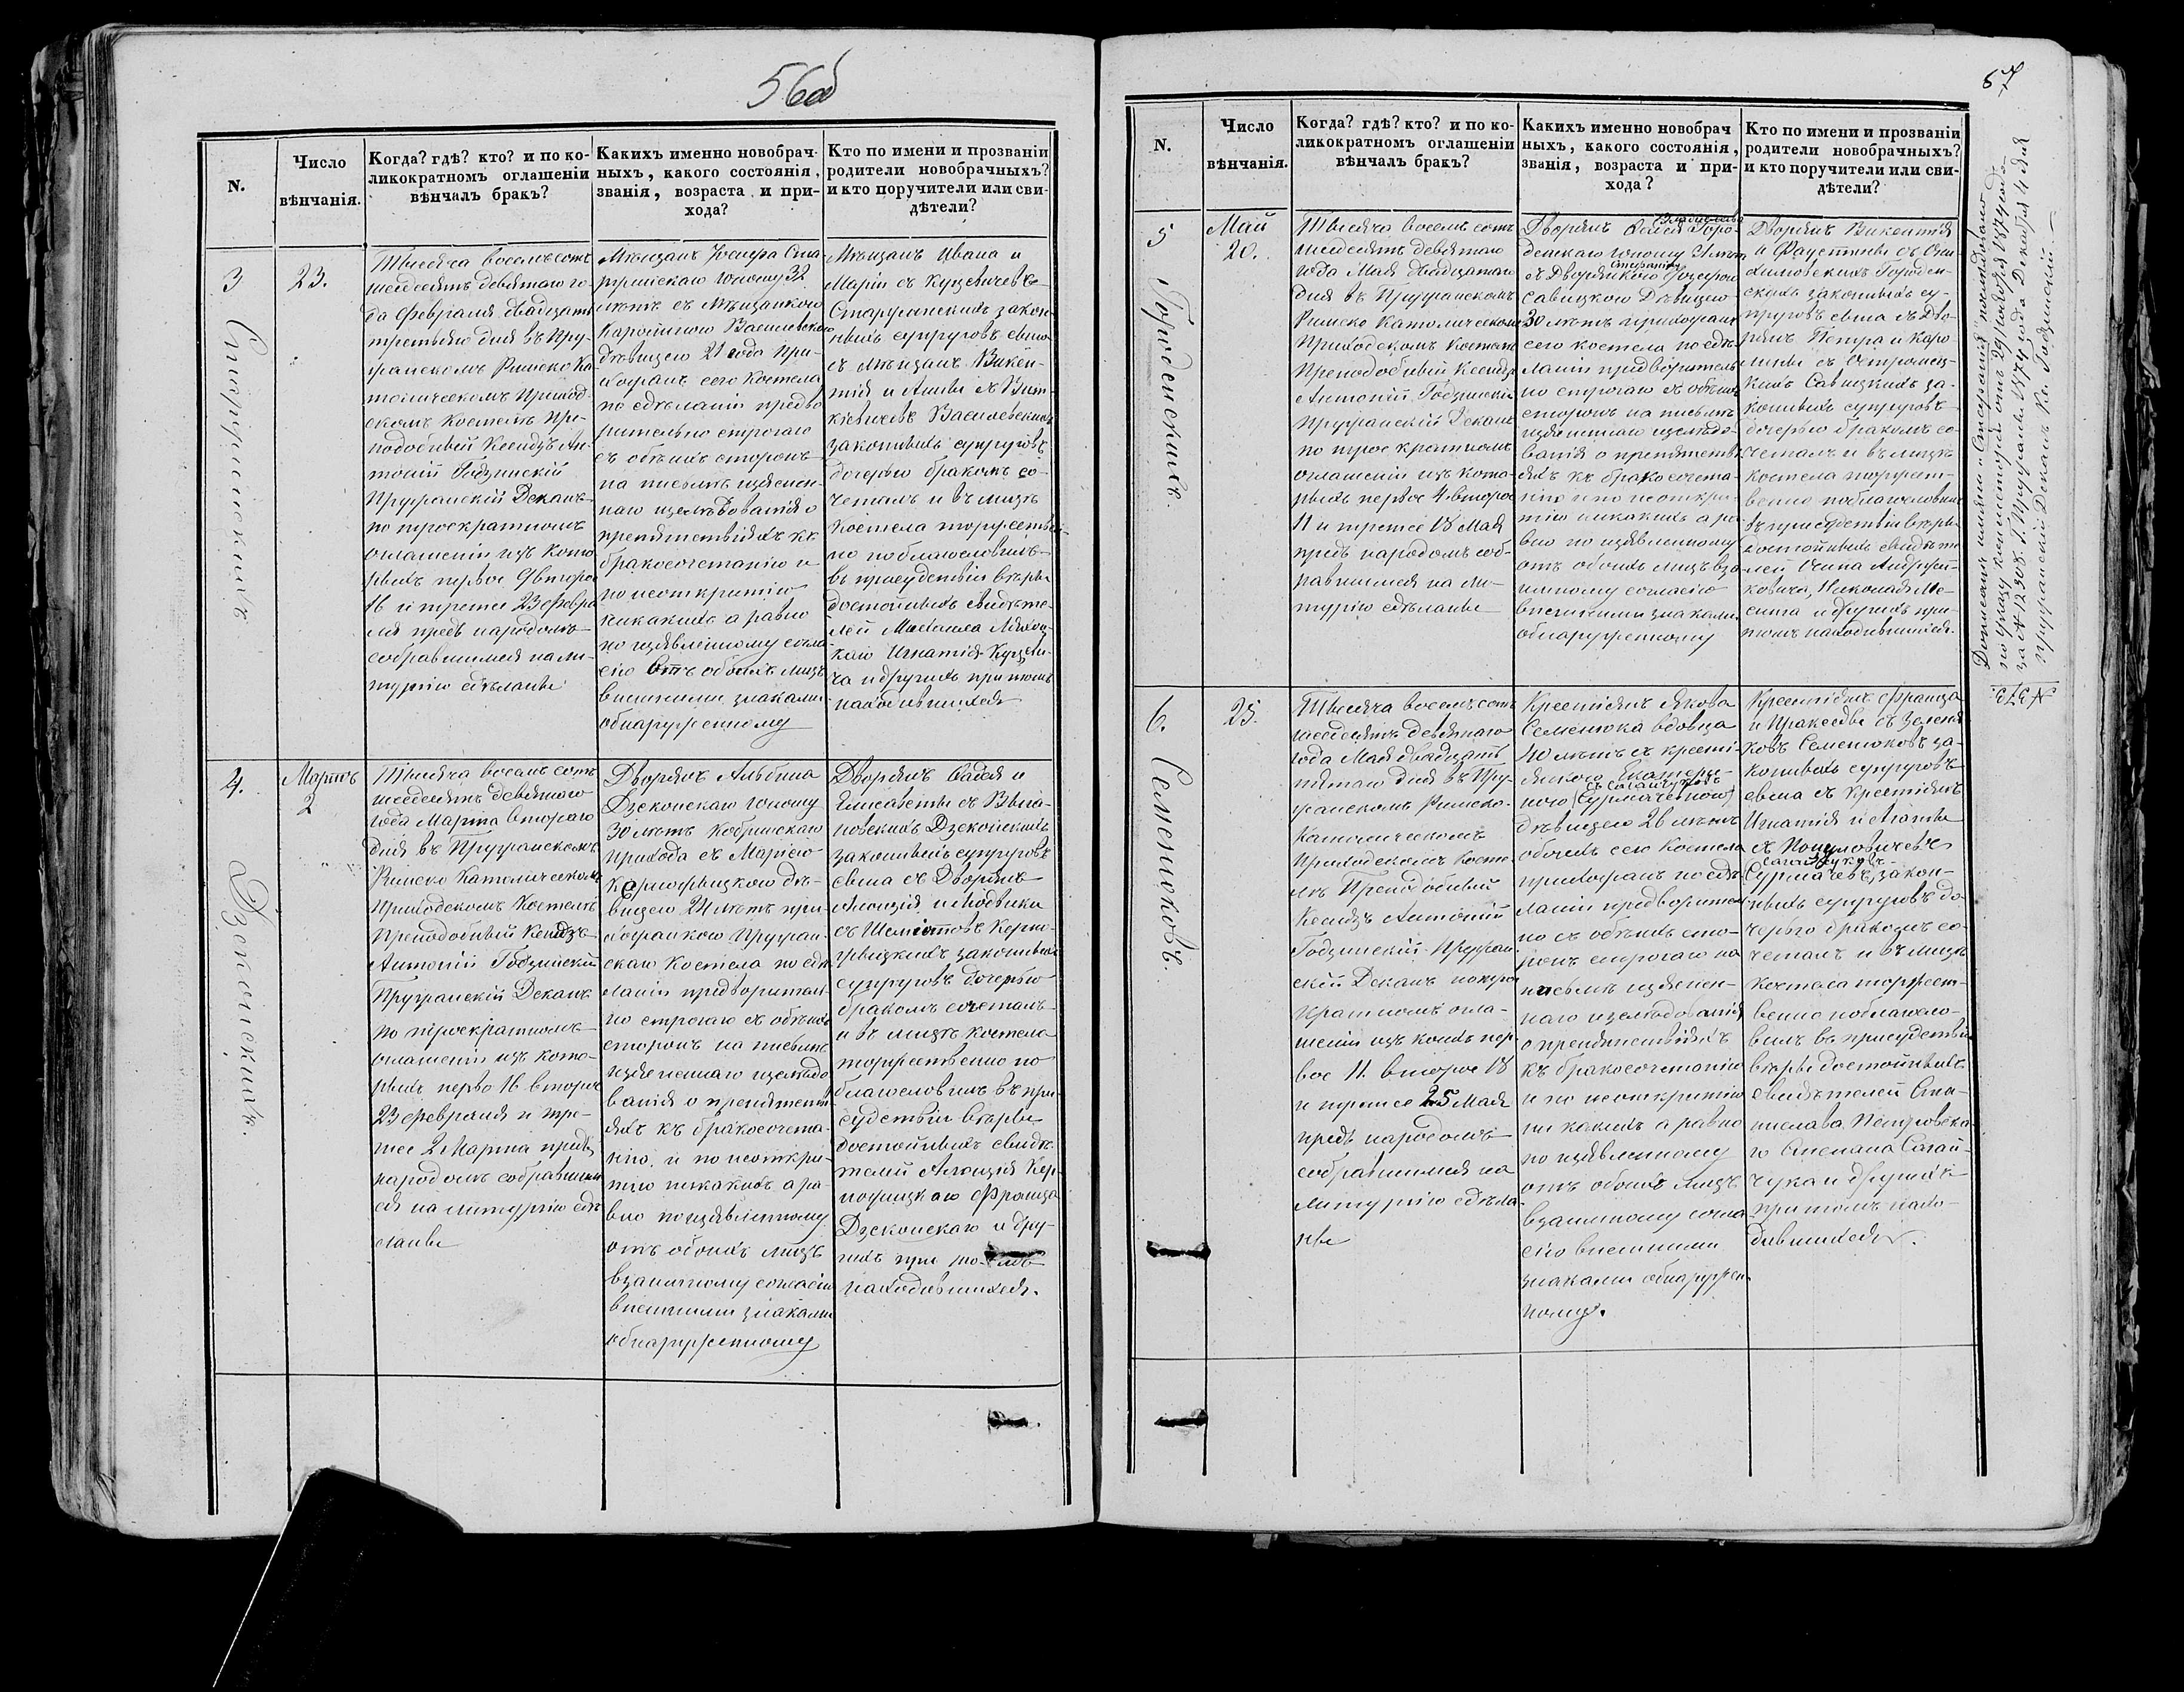 56об
N.
Число
вѣнчанія.
Когда? гдѣ? кто? и по ко-
ликократномъ оглашеніи
вѣнчалъ бракъ?
Какихъ именно новобрач-
ныхъ, какого состоянія,
званія, возраста и при-
хода?
Кто по имени и прозваніи
родители новобрачныхъ?
и кто поручители или сви-
дѣтели?
3
23.
Тысяча восемъ сотъ
шесдесятъ девятаго го-
да Февраля двадцать
третьяго дня въ Пру-
жанскомъ Римско Ка
толическомъ Приход
скомъ Костелѣ Пре-
подобный Ксендзъ Ан-
тоній Годзинскій
Пружанскій Деканъ
по троекратномъ
оглашеніи изъ кото
рыхъ первое 9 второе
16 и третее 23 Февра
ля предъ народомъ
собравшимся на ли-
тургію сдѣланы
Мѣщанъ Іосифа Ста
ринскаго юношу 32
лѣтъ съ мѣщанкою
Каролиною Василевскою
дѣвицею 21 года при-
хожанъ сего Костела
по сдѣланіи предва
рительно строгаго
съ обѣихъ сторонъ
на письмѣ изъяснен-
наго изслѣдованія о
препятствіяхъ къ
бракосочетанію и
по неоткрытію
никакихъ а равно
по изъявленному согла
сію отъ обоихъ лицъ
внешними знаками
обнаруженному
Мѣщанъ Ивана и
Маріи съ Куцевичевъ
закон-
ныхъ супруговъ сына
съ мѣщанъ Викен-
тія и Анны съ Вит-
кевичевъ Василевскихъ
законныхъ супруговъ
дочерью бракомъ со-
четалъ и въ лицѣ
Костела торжествен-
но поблагословилъ
въ присудствіи вѣры
достойныхъ свидѣте-
лей Михаила
каго Игнатія Куцеви-
ча и другихъ при томъ
находившихся
4.
Мартъ
2
Дзеконскихъ.
Тысяча восемь сотъ
шесдесятъ девятого
года Марта второго
дня въ Пружанскомъ
Римско Католическомъ
Приходскомъ Костелѣ
Преподобный Ксендзъ
Антоній Годзинскій
Пружанскій Деканъ
по троекратномъ
оглашеніи изъ кото-
рыхъ перво 16 второе
23 февраля и тре-
тее 2 Марта предъ
народомъ собравшим
ся на литургію сдѣ
ланы
Дворянъ Альбина
Дзеконскаго юношу
30 лѣтъ Кобринскаго
Прихода съ Маріею
дѣ-
вицею 24 лѣтъ при-
хожанкою Пружан-
скаго Костела по сдѣ
ланіи предворитель-
но строгаго съ обѣихъ
сторонъ на письмѣ
изъясненнаго изслѣдо
ванія о препятстві
яхъ къ бракосочета-
нію. и по неоткры-
тію никакихъ а ра
вно по изъявленному
отъ обоихъ лицъ
взаимному согласію
внешними знаками
обнаруженному
Дворянъ Фадея и
Елисаветы съ
Дзеконскихъ
законныхъ супруговъ
сына съ Дворянъ
Алоизія и Людвики
законныхъ
супруговъ дочерью
бракомъ сочеталъ
и въ лицѣ костела
торжественно по
благословилъ въ при
судствіи вѣры
достойныхъ свидѣ-
телей Алоизія
Франца
Дзеконскаго и дру-
гихъ при томъ
находившихся.
57
N.
Число
вѣнчанія.
Когда? гдѣ? кто? и по ко-
ликократномъ оглашеніи
вѣнчалъ бракъ?
Какихъ именно новобрач
ныхъ, какого состоянія,
званія, возраста и при-
хода?
Кто по имени и прозваніи
родители новобрачныхъ?
и кто поручители или сви-
дѣтели?
5
Май
20.
Городенскихъ.
Тысяча восемъ сотъ
шесдесятъ девятаго
года Мая двадцатаго
дня въ Пружанскомъ
Римско Католическомъ
Приходскомъ Костелѣ
Преподобный Ксендзъ
Антоній Годзинскій
Пружанскій Деканъ
по трое кратномъ
оглашеніи изъ кото-
рыхъ первое 4 второе
11 и третее 18 Мая
предъ народомъ соб-
равшимся на ли-
тургію сдѣланы
Дворянъ Горо-
денскаго юношу лѣтъ
Стефаніею
съ Дворянкою Юзефою
Савицкою Дѣвицею
30 лѣтъ прихожанъ
сего костела по сдѣ-
ланіи предворитель
но строгаго съ обѣихъ
сторонъ на письмѣ
изъясненнаго изслѣдо-
ванія о препятстві
яхъ къ бракосочета-
нію и по неоткры-
тію никакихъ а ра-
вно по изъявленному
отъ обоихъ лицъ вза
имному согласію
внешними знаками
обнаруженному
Дворянъ Викентія
и Фаустины съ
Городен-
скихъ законныхъ су-
пруговъ сына съ Дво-
рянъ Петра и Каро
лины съ Остромец-
кихъ Савицкихъ за-
конныхъ супруговъ
дочерью бракомъ со-
четалъ и въ лицѣ
костела торжест-
венно поблагословилъ
въ присудствіи вѣры
достойныхъ свидѣте
лей Осипа Андруш-
ковича, Николая
и другихъ при
томъ находившихся.
Дописаніе имени „Стефанія" послѣдовало
по указу консисторіи отъ 29 ноября 1874 года
за № 12308. Г. Пружаны 1874 года Декабря 4 дня
Пружанскій Деканъ Кс. Годзинскій.
№ 373.
6.
25.
Семенюковъ.
Тысяча восемъ сотъ
шесдесятъ девятаго
года Мая двадцать
пятаго дня въ Пру-
жанскомъ Римско-
Католическомъ
Приходскомъ Косте
лѣ Преподобный
Ксендзъ Антоній
Годзинскій Пружан
скій Деканъ по трое
кратномъ огла-
шеніи изъ коихъ пер
вое 11. второе 18
и третее 25 Мая
предъ народомъ
собравшимся на
литургію сдѣла
ны
Крестьянъ Якова
Семенюка вдовца
40 лѣтъ съ кресть-
янкою Екатери-
ною (Сурмачевною)
дѣвицею 26 лѣтъ
обоихъ сего Костела
прихожанъ по сдѣ-
ланіи предворитель
но съ обѣихъ сто-
ронъ строгаго на
письмѣ изъяснен-
наго изслѣдованія
о препятствіяхъ
къ бракосочетанію
и по неоткрытію
ни какихъ а равно
по изъявленному
отъ обоихъ лицъ
взаимному согла
сію внешними
знаками обнаружен-
ному.
Крестьянъ Франца
и Пракседы съ
Семенюковъ за-
конныхъ супруговъ
сына съ Крестьянъ
Игнатія и Агаты
Сагайчуковъ
Сурмачевъ, закон-
ныхъ супруговъ до-
черью бракомъ со-
четалъ и въ лицѣ
костела торжест-
венно поблагосло-
вилъ въ присудствіи
вѣры достойныхъ
свидѣтелей Ста-
нислава Петровска-
го Степана Сагай-
чука и другихъ
при томъ нахо-
дившихся.